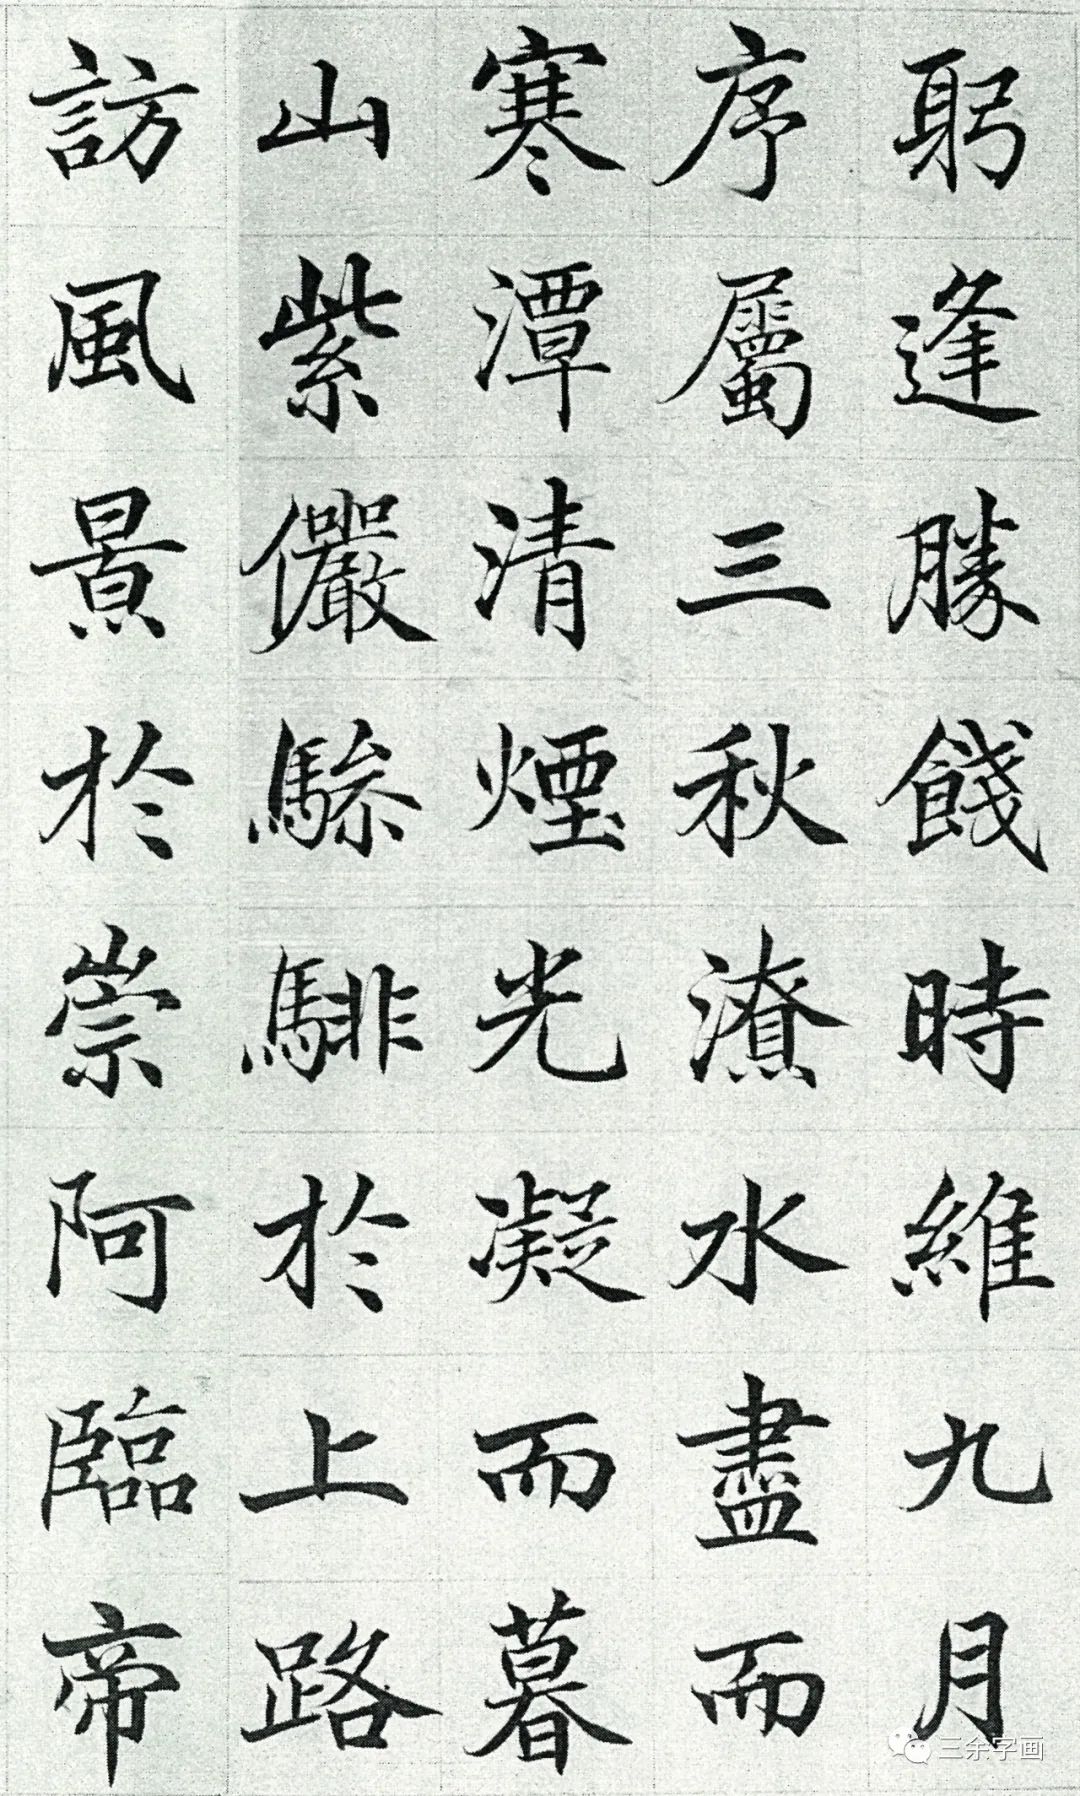 躬逢勝餞時維九月
序屬三秋潦水盡而
寒潭清煙光凝而暮
山紫儼驂騑於上路
訪風景於崇阿臨帝
三余字画